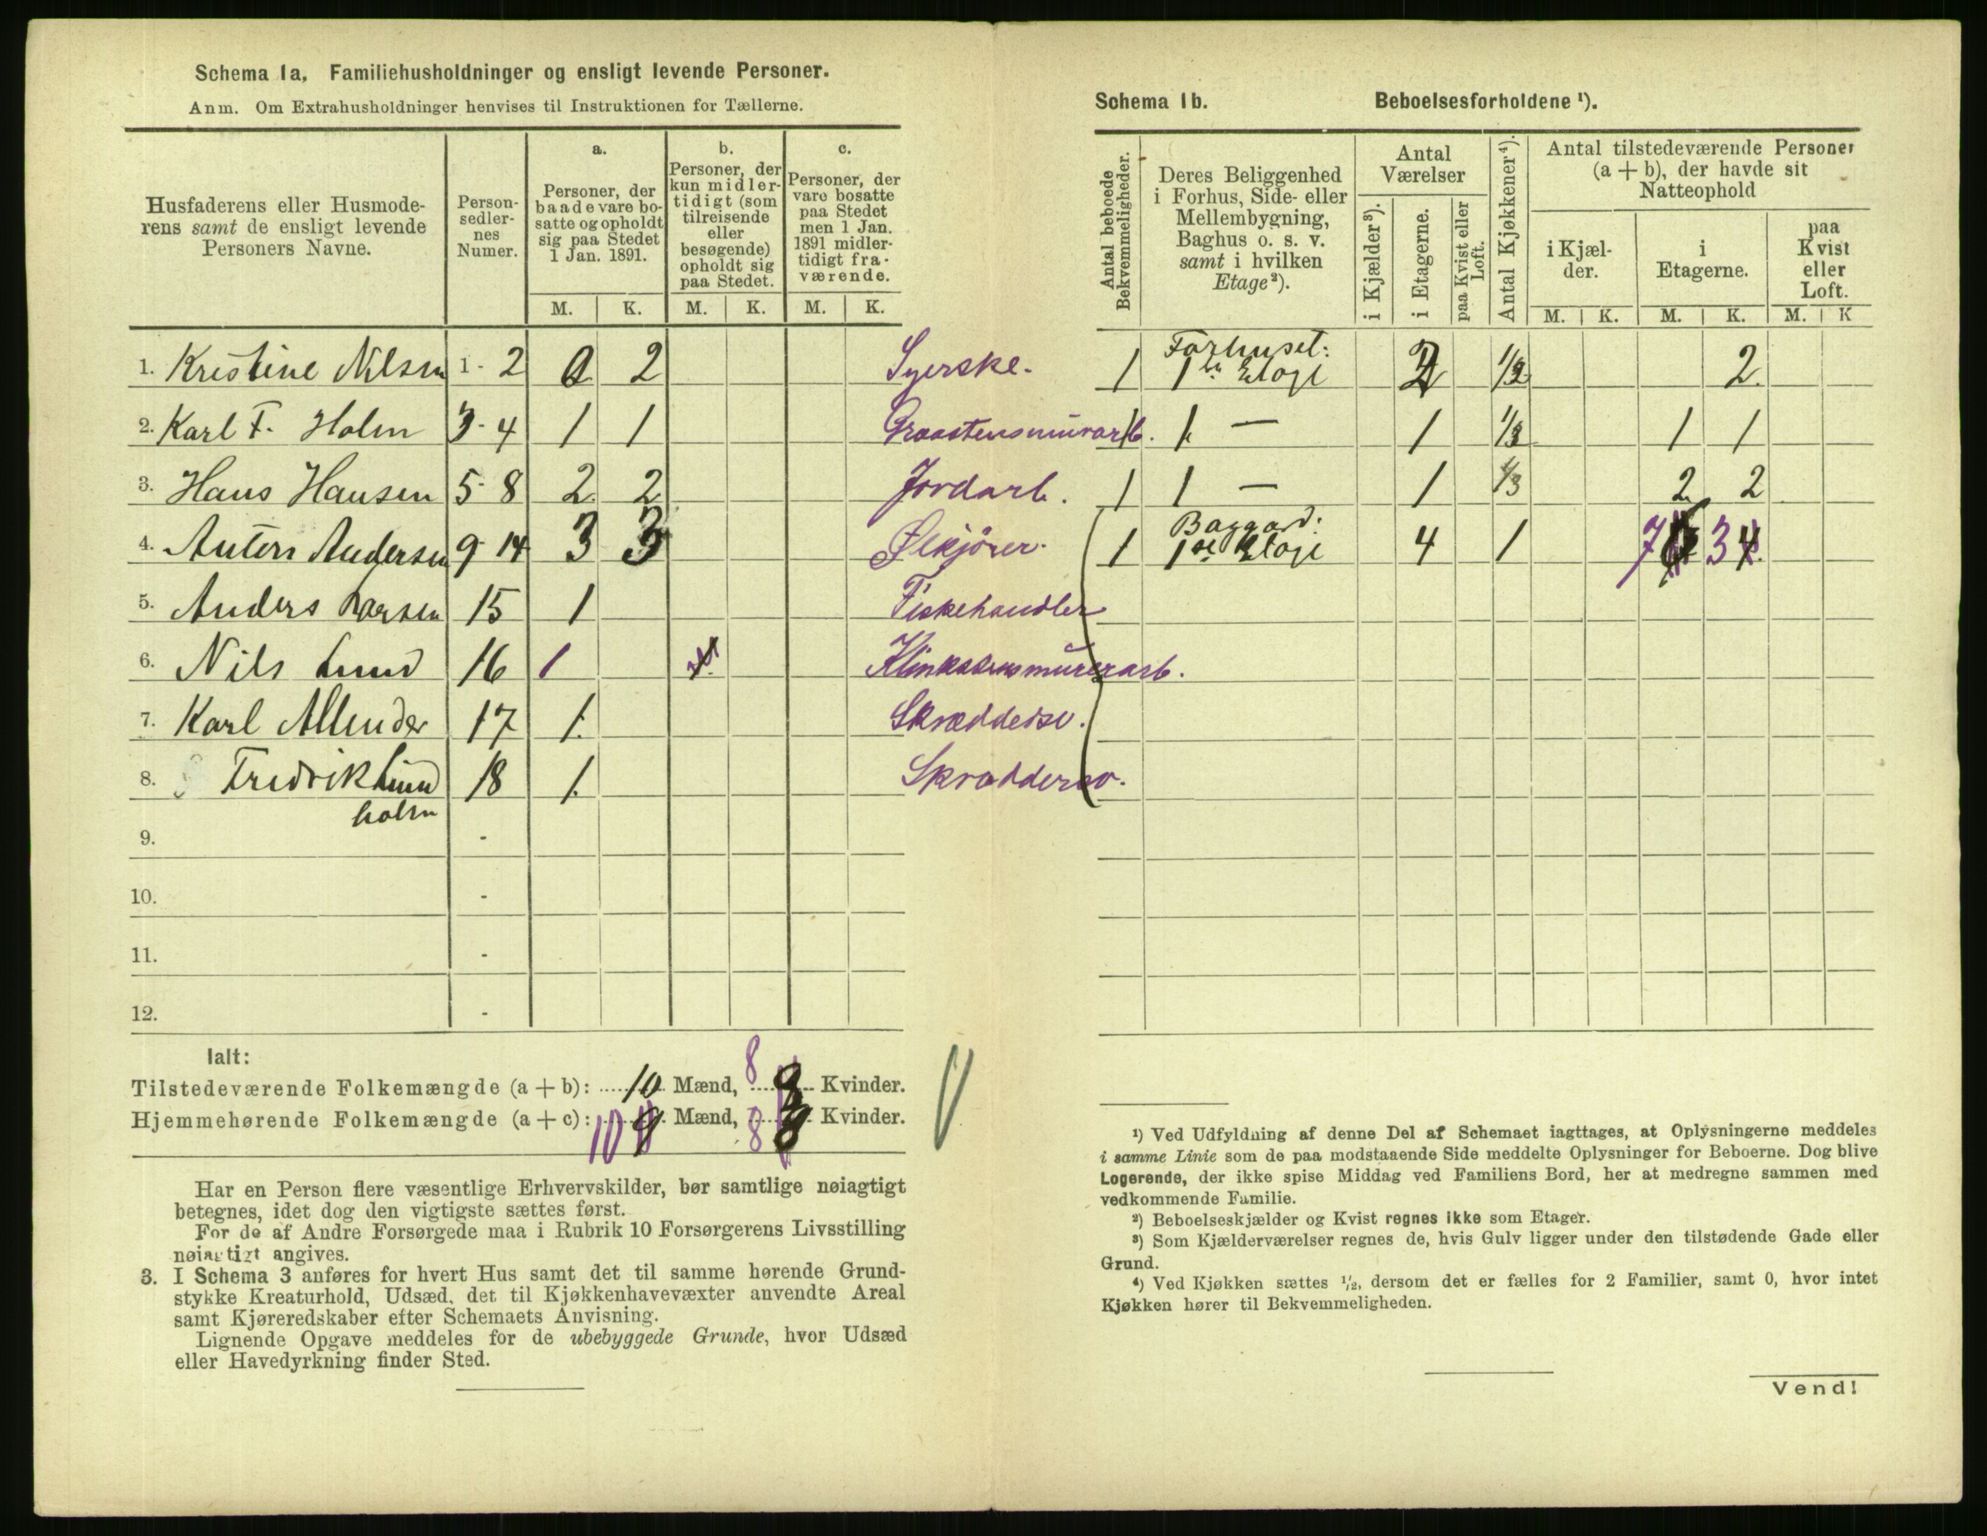 Schema 1a, Familiehusholdninger og ensligt levende Personer.
Anm. Om Extrahusholdninger henvises til Instruktionen for Tællerne.
Husfaderens eller Husmoderens samt de ensligt levende Personers Navne.
Personsedlernes Numer.
a. Personer, der baade vare bosatte og opholdt sig paa Stedet 1 Jan. 1891.
b. Personer, der kun midlertidigt (som tilreisende eller besøgende) opholdt sig paa Stedet.
c. Personer, der vare bosatte paa Stedet men 1 Jan. 1891 midlertidigt fraværende.
M. K. M. K. M. K.
1. Kristine Nilsen 1 - 2 0 2 Syerske.
2. Karl F. Holm 3 - 4 1 1 Graastensmurarb.
3. Hans Hansen 5 - 8 2 2 Jordarb.
4. Anton Andersen 9 - 14 3 3 Ølkjører.
5. Anders Larsen 15 1 Fiskehandler
6. Nils Lund 16 1 Klinkstensmurerarb.
7. Karl Allender 17 1. Skræddersv.
8. Fredrik Lund 18 1. Skræddersv.
holm
9. -
10. -
11. -
12. -
Ialt:
Tilstedeværende Folkemængde (a + b): 10 Mænd, 8 Kvinder.
Hjemmehørende Folkemængde (a + c): 10 Mænd, 8 Kvinder.
Har en Person flere væsentlige Erhvervskilder, bør samtlige nøiagtigt
betegnes, idet dog den vigtigste sættes først.
For de af Andre Forsørgede maa i Rubrik 10 Forsørgerens Livsstilling
nøiagtigt angives.
3. I Schema 3 anføres for hvert Hus samt det til samme hørende Grund-
stykke Kreaturhold, Udsæd, det til Kjøkkenhavevæxter anvendte Areal
samt Kjøreredskaber efter Schemaets Anvisning.
Lignende Opgave meddeles for de ubebyggede Grunde, hvor Udsæd
eller Havedyrkning finder Sted.
Schema 1b. Beboelsesforholdene ¹).
Antal beboede Bekvemmeligheder.
Deres Beliggenhed i Forhus, Side- eller Mellembygning, Baghus o. s. v. samt i hvilken Etage²).
Antal Værelser
i Kjælder³).
i Etagerne.
paa Kvist eller Loft.
Antal Kjøkkener⁴).
Antal tilstedeværende Personer (a + b), der havde sit Natteophold
i Kjælder.
i Etagerne.
paa Kvist eller Loft.
M. K. M. K. M. K
Forhuset:
1 1ste Etage 2 1/3 2
1 1 — 1 1/3 1 1
1 1 — 1 1/3 2 2
Baggard:
1 1ste Etage 4 1 7 3
¹) Ved Udfyldning af denne Del af Schemaet iagttages, at Oplysningerne meddeles
i samme Linie som de paa modstaaende Side meddelte Oplysninger for Beboerne. Dog blive
Logerende, der ikke spise Middag ved Familiens Bord, her at medregne sammen med
vedkommende Familie.
²) Beboelseskjælder og Kvist regnes ikke som Etager.
³) Som Kjælderværelser regnes de, hvis Gulv ligger under den tilstødende Gade eller
Grund.
⁴) Ved Kjøkken sættes ¹/₂, dersom det er fælles for 2 Familier, samt 0, hvor intet
Kjøkken hører til Bekvemmeligheden.
Vend!